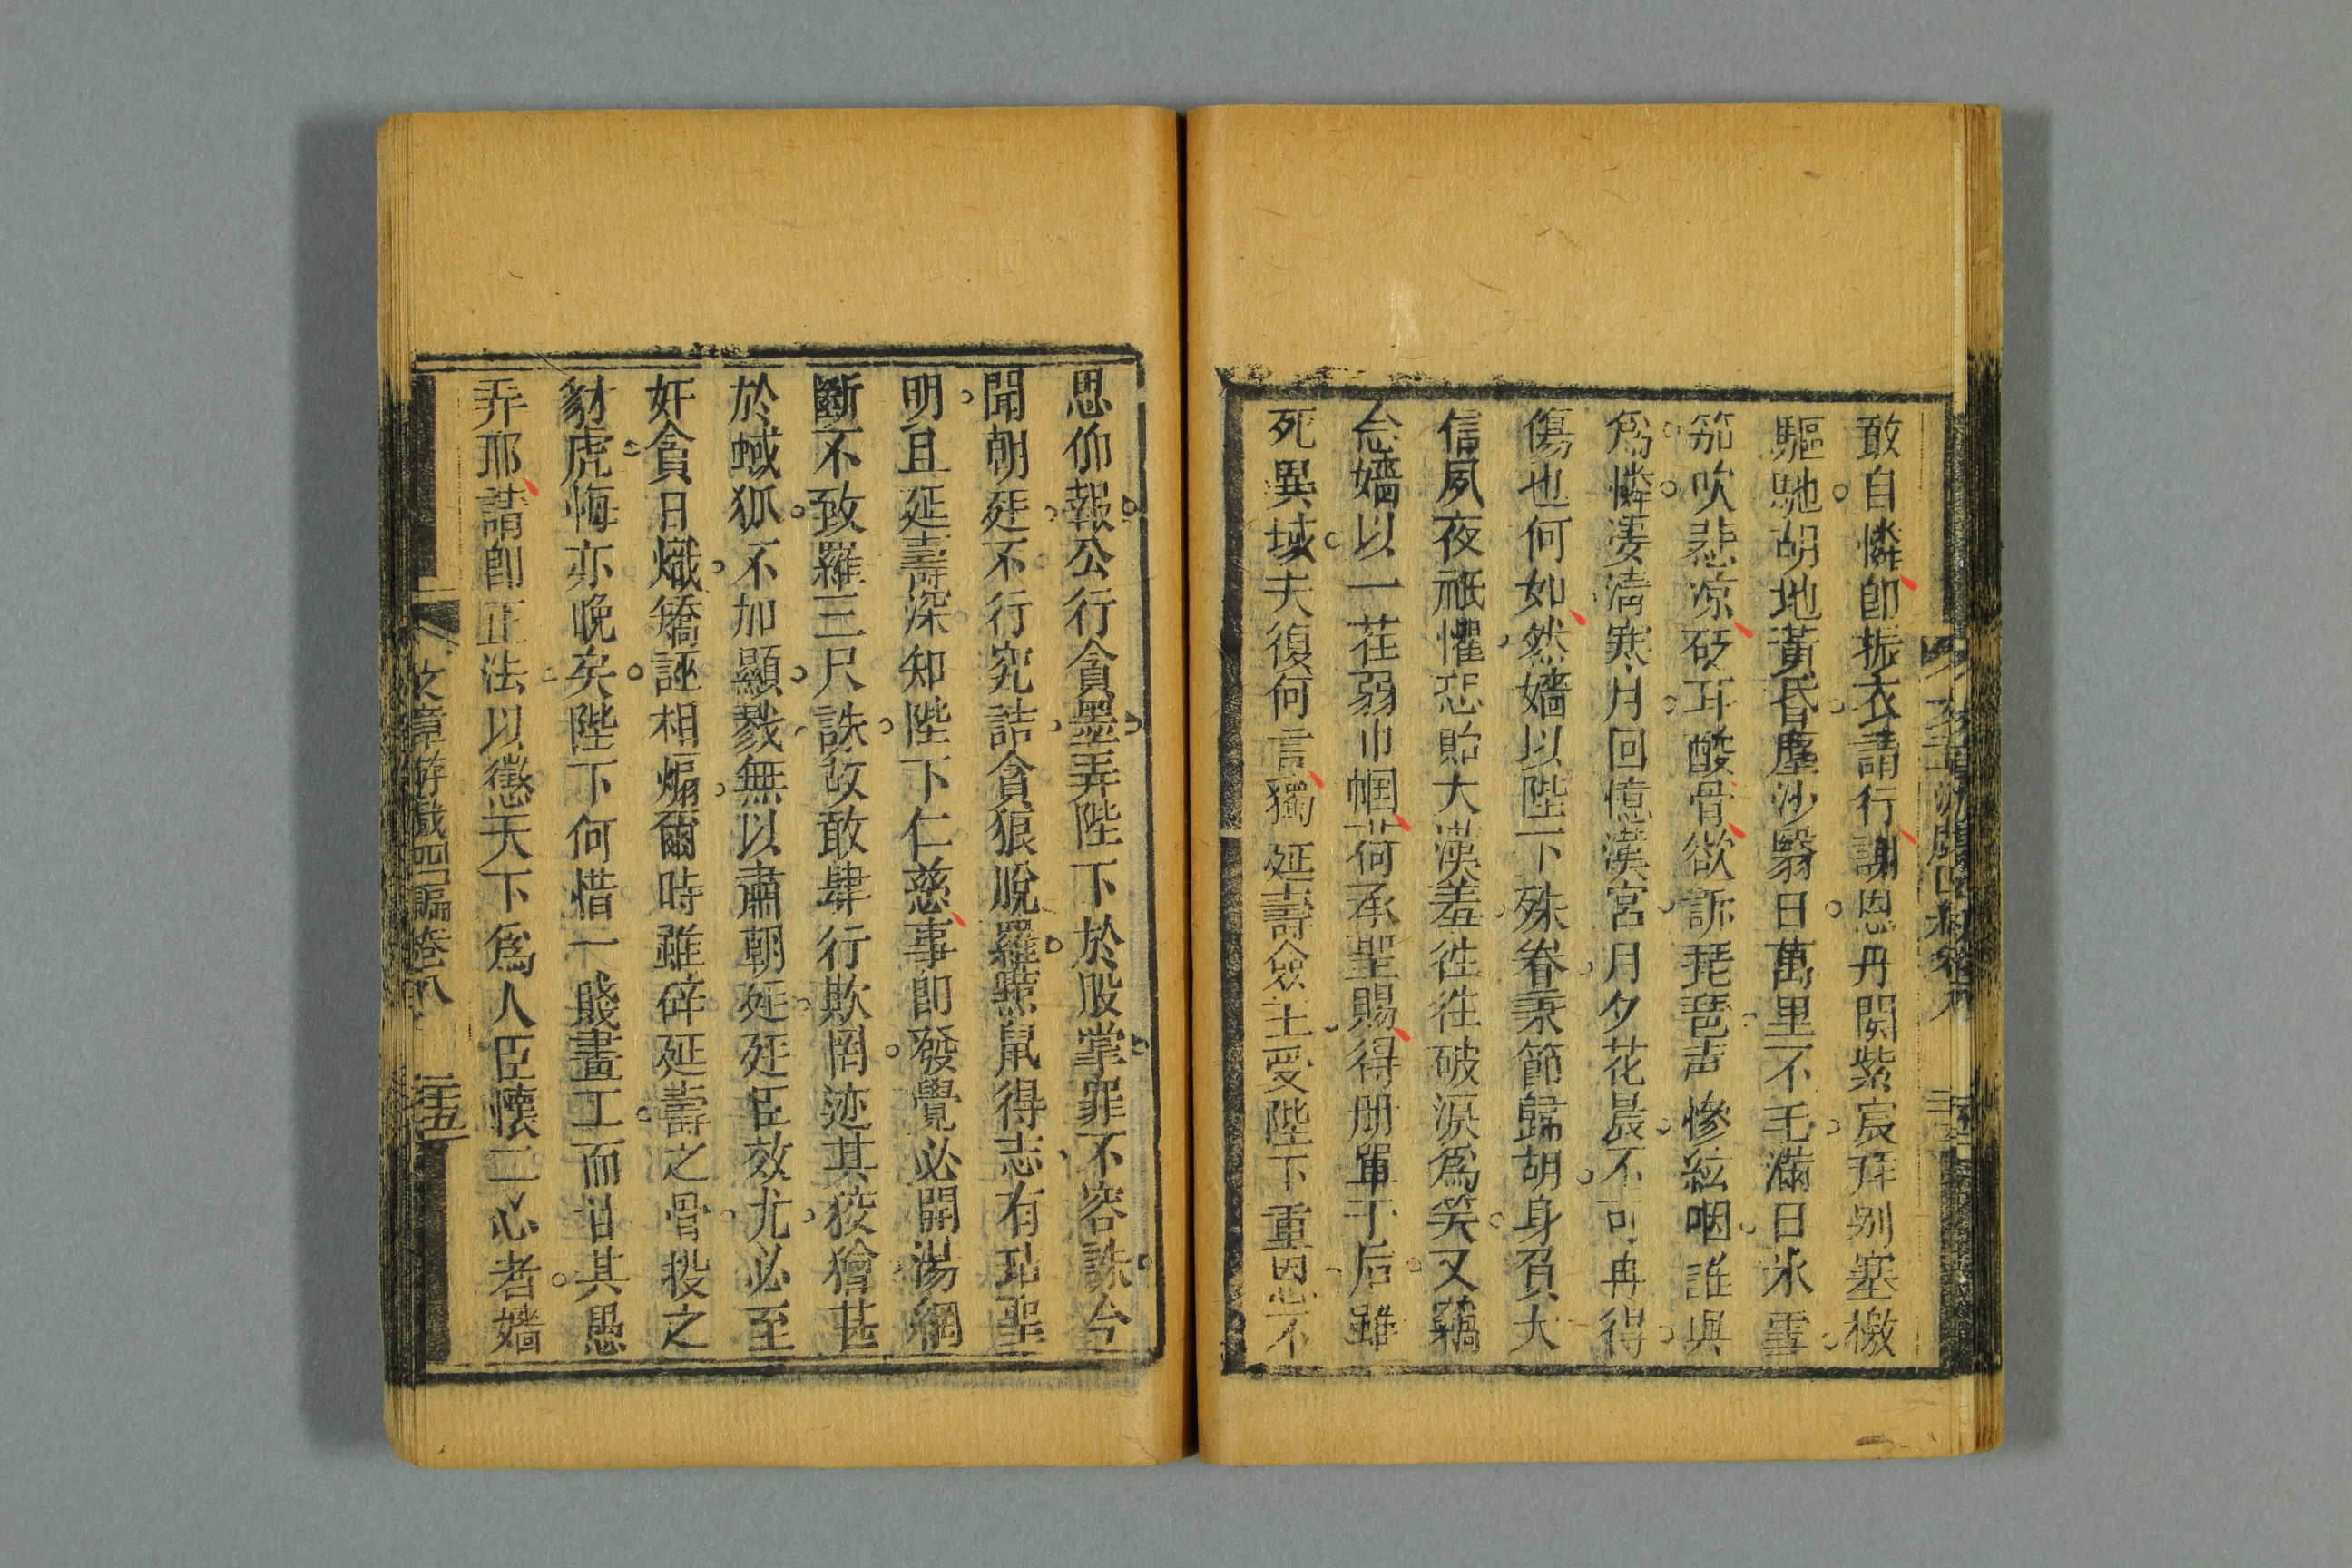 敢自憐卽振衣請行謝恩丹闕紫宸拜別塞檄
驅馳胡地黃昏塵沙翳日萬里不毛滿目氷雪
笳吹悲涼砭耳酸骨欲訴琵琶声慘絃咽誰與
爲憐凄淸寒月回憶漢宮月夕花晨不可冉得
傷也何如然嬙以陛下殊眷秉節歸胡身負大
信夙夜祇懼恐貽大漢羞徃徃破淚爲笑又竊
念嬙以一荏弱巾幗荷承聖賜得册單于后雖
死異域夫復何言獨延壽僉壬受陛下重恩不
思仰報公行貪墨弄陛下於股掌罪不容誅今
聞朝廷不行究詰貪狼脫羅點鼠得志有玷聖
明且延壽深知陛下仁慈事卽發覺必開湯網
斷不致羅三尺誅故敢肆行欺罔迹其狡獪甚
於蜮狐不加顯戮無以肅朝廷廷臣效尤必至
奸貪日熾矯誣相煽爾時雖碎延壽之骨投之
豺虎悔亦晚矣陛下何惜一賤畫工而甘其愚
弄耶請卽正法以懲天下爲人臣懷二心者嬙
文章游戲四編卷八
三五